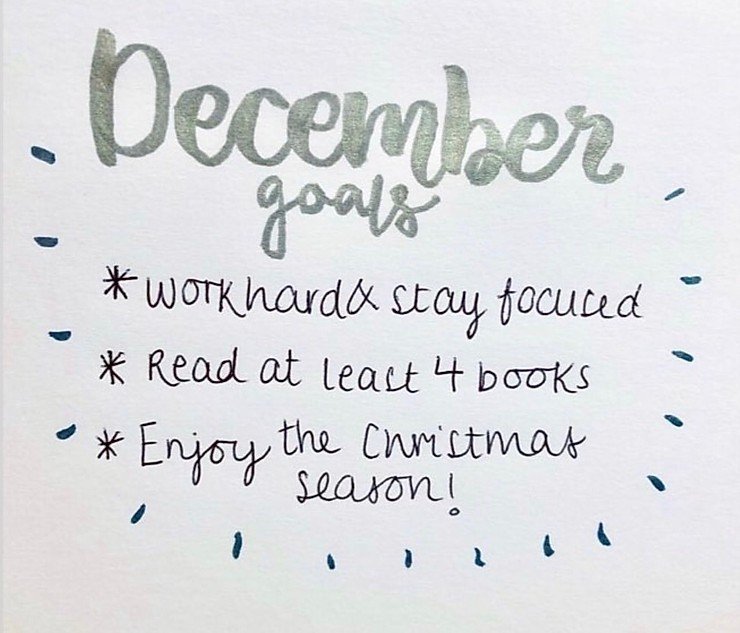 December
goals
* Work hard & stay focused
* Read at least 4 books
* Enjoy the Christmas
season!